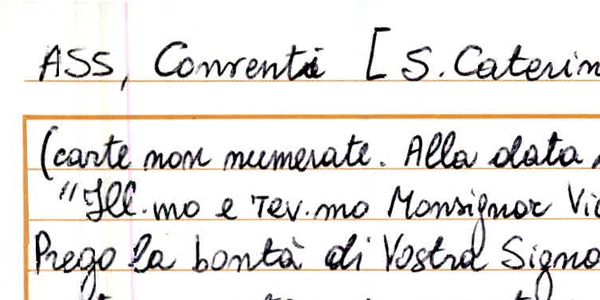 ASS, Conventi [S. Caterin
(carte non numerate. Alla data
"Ill.mo e rev.mo Monsignor Vic
Prego la bontà di Vostra Signo